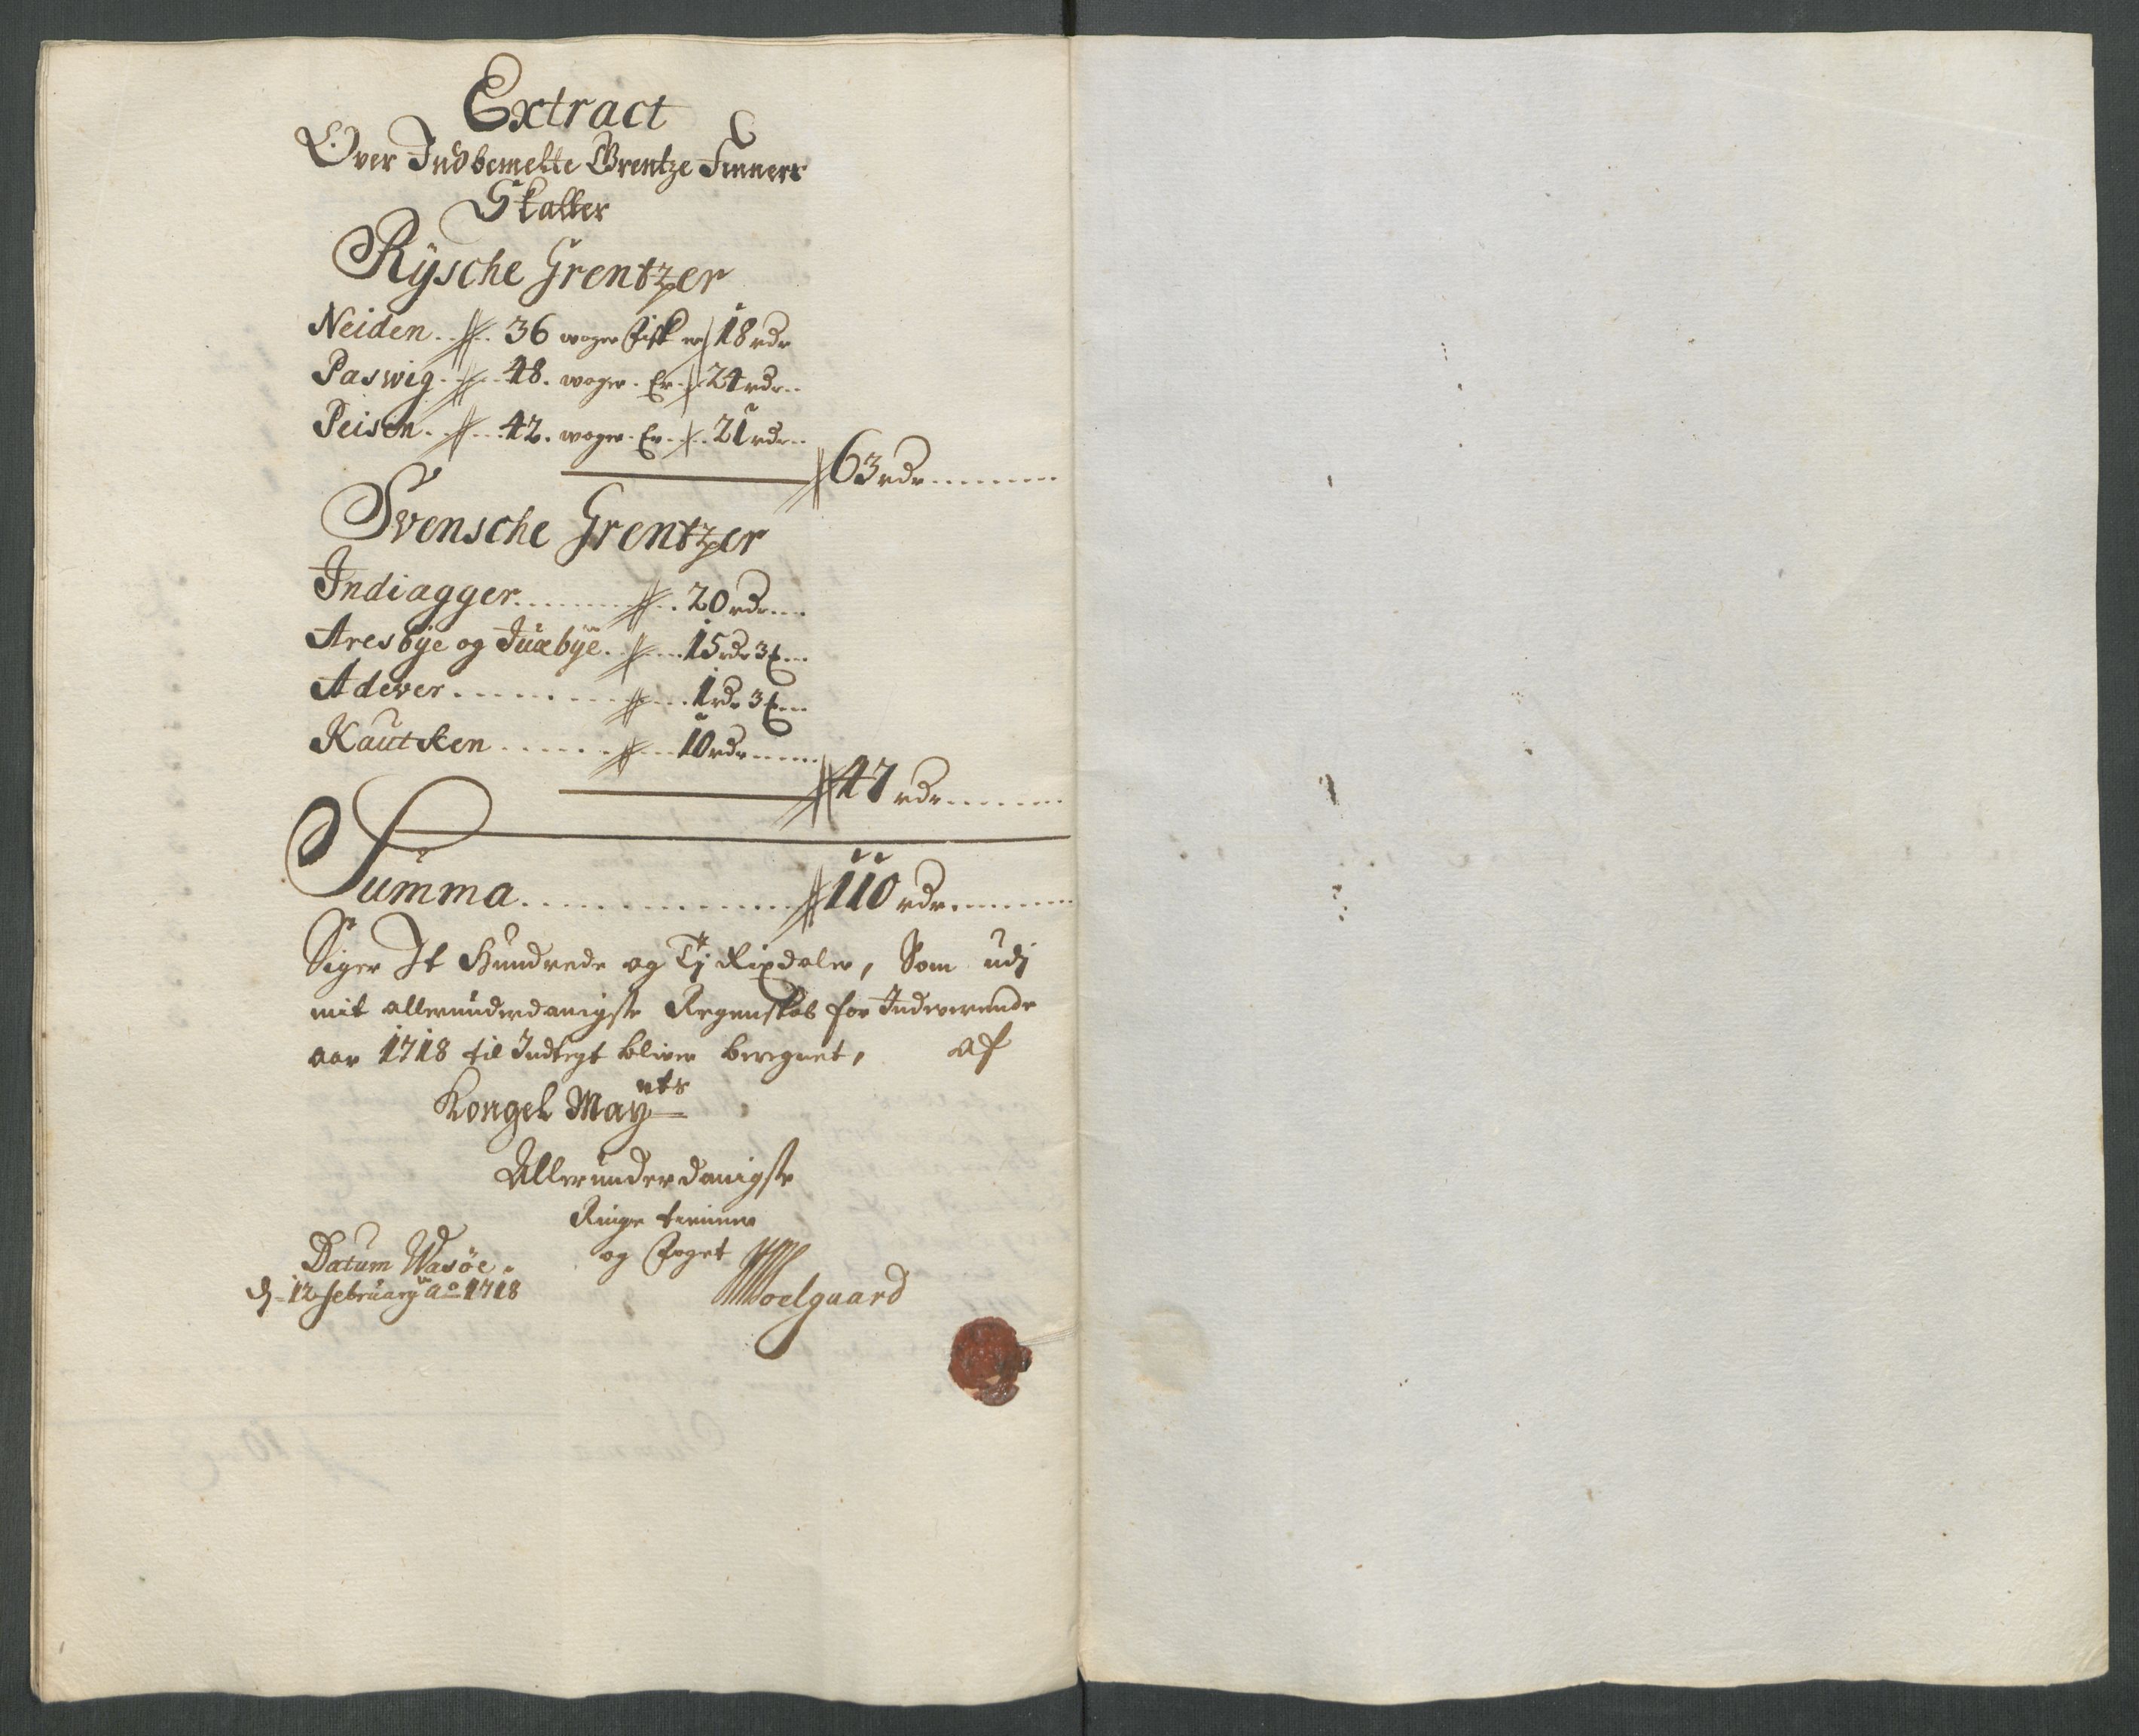 Extract
Over Indbemelte Grentze Finners
Skatter
Rÿsche Grentzer
Neiden . . 36 woger Fisk er 18 rdr
Paswig . . 48 . woger . Er . 24 rdr
Peisen . . 42 . woger . Er . 21 rdr
63 rdr
Svensche Grentzer
Indiagger . . . 20 rdr
Aresbÿe og Juxbÿe . . 15 rdr 3 ƒ
Adever . . . 1 rdr 3 ƒ
Kautken . . . 10 rdr
47 rdr
Summa . . . 110 rdr
Siger Jt Hundrede og Tj Rixdaler, Som udj
mit allerunderdanigste Regenskab for Indeverende
aar 1718 til Indtegt bliver beregnet, af
Kongel Mayts
Allerunderdanigste
Ringe tienner
og Foget
Datum Wasöe .
d 12 februarÿ ao 1718
Soelgaard